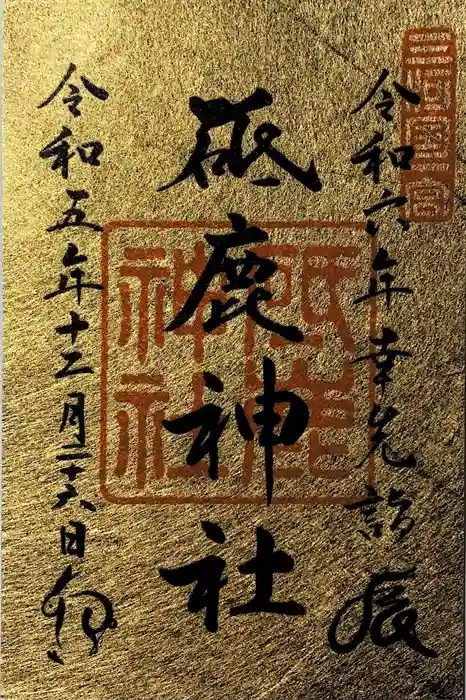 三河國一宮
令和六年幸先詣 辰
砥鹿神社
砥鹿神社
令和五年十二月二十六日